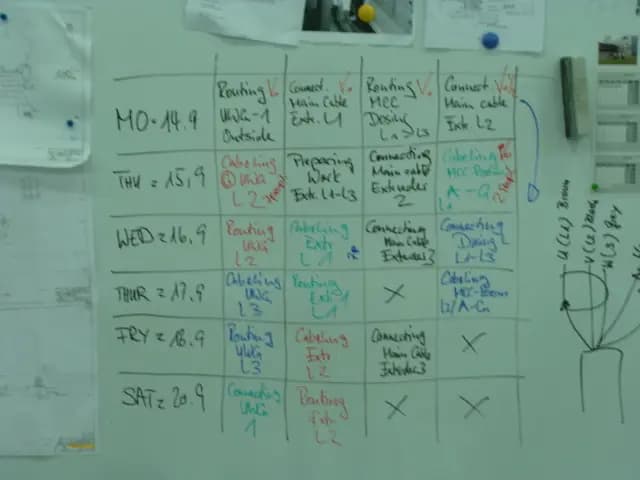 MO = 14.9
Routing
UWG-1
Outside
Connect.
Main Cable
Extr. L1
Routing
MCC
Dosing
L1 > L3
Connect.
Main cable
Extr L2
THU = 15.9
Cabeling
UWG
L2
Preparing
Work
Extr. L1-L3
Connecting
Main cable
Extruder
2
Cabeling
A - G
WED = 16.9
Routing
UWG
L2
Cabeling
Extr
L1
Connecting
Main Cable
Extruder 3
Connecting
Dosing
L1-L3
THUR = 17.9
Cabeling
UWG
L3
Routing
Extr
L1
X
Cabeling
MCC-Room
FRY = 18.9
Routing
UWG
L3
Cabeling
Extr
L2
Connecting
Main Cable
Extruder 3
X
SAT = 20.9
Connecting
UWG
1
Routing
Extr
L2
X
X